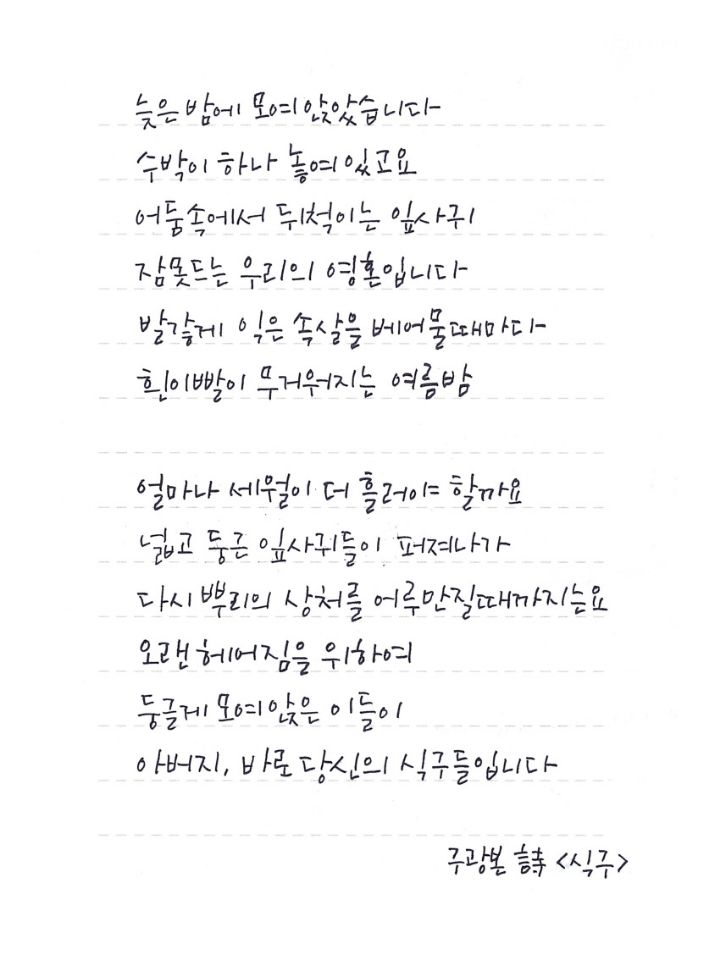 늦은 밤에 모여 앉았습니다
수박이 하나 놓여 있고요
어둠속에서 뒤척이는 잎사귀
잠못드는 우리의 영혼입니다
발갛게 익은 속살을 베어물때마다
흰이빨이 무거워지는 여름밤
얼마나 세월이 더 흘러야 할까요
넓고 둥근 잎사귀들이 퍼져나가
다시 뿌리의 상처를 어루만질때까지는요
오랜 헤어짐을 위하여
둥글게 모여앉은 이들이
아버지, 바로 당신의 식구들입니다
주광본 詩 <식구>